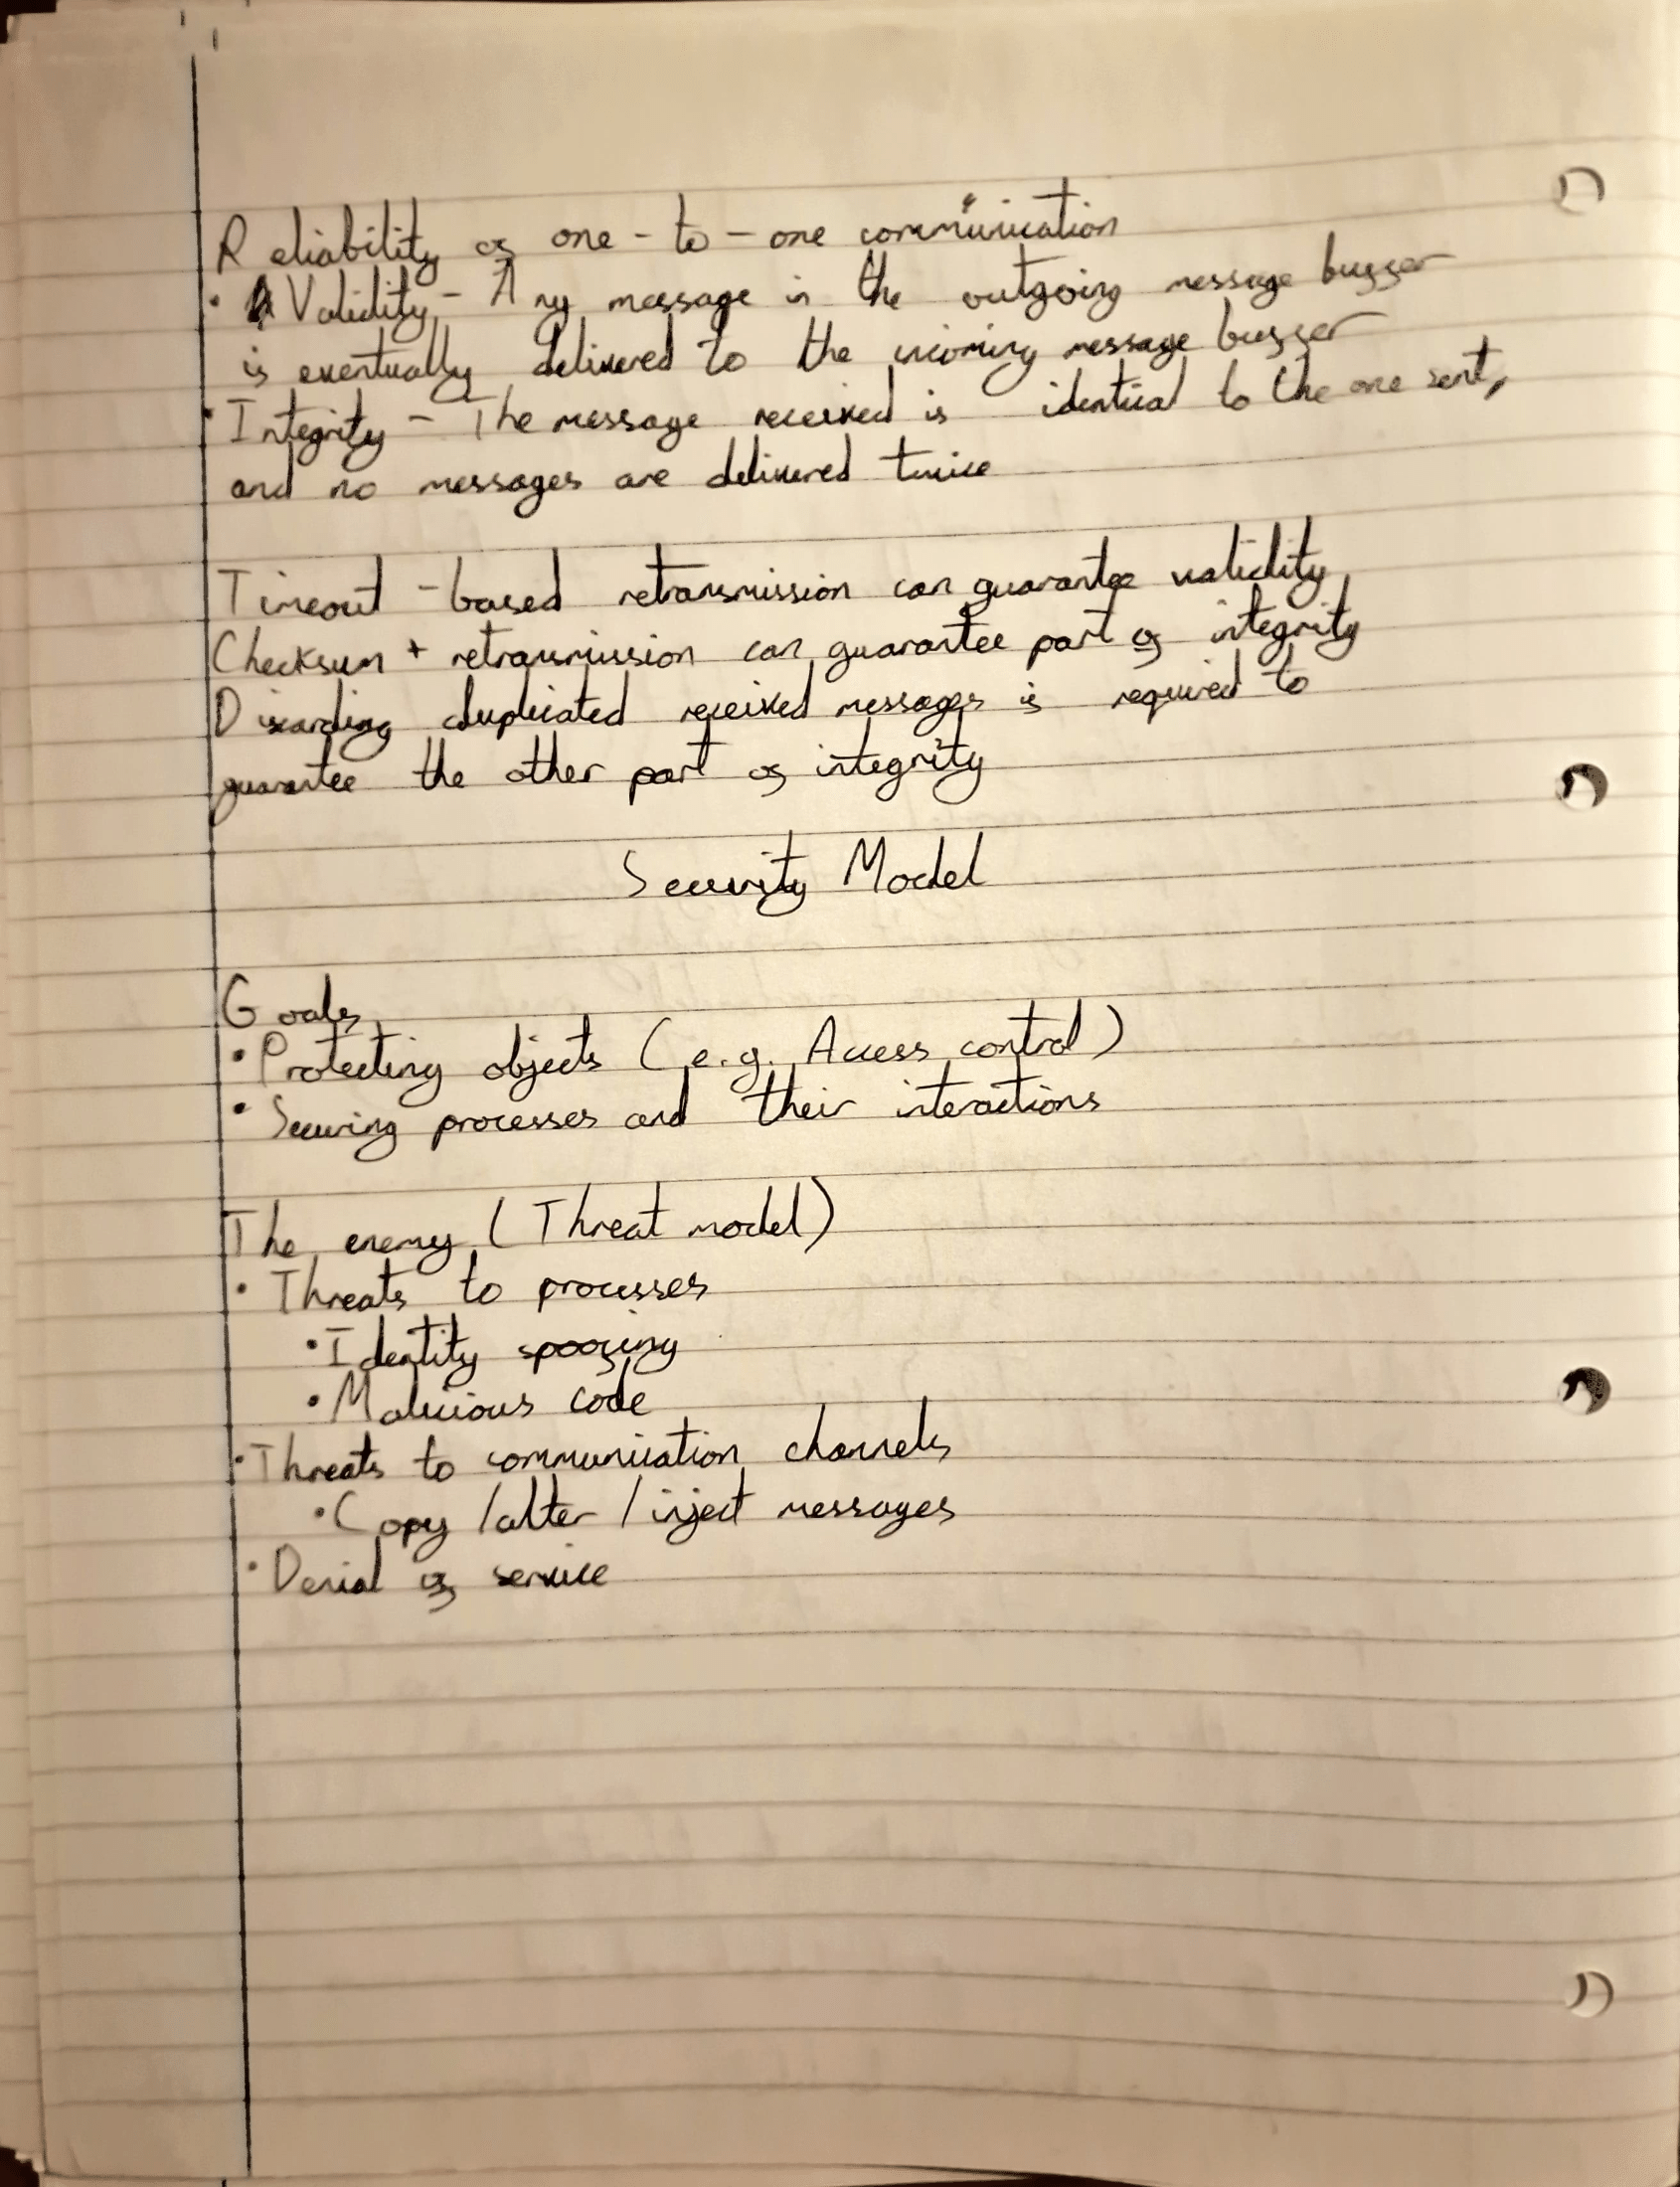 Reliability of one-to-one communication
• Validity - Any message in the outgoing message buffer
is eventually delivered to the incoming message buffer
• Integrity - The message received is identical to the one sent,
and no messages are delivered twice
Timeout-based retransmission can guarantee validity
Checksum + retransmission can guarantee part of integrity
Discarding duplicated received messages is required to
guarantee the other part of integrity
Security Model
Goals
• Protecting objects (e.g. Access control)
• Securing processes and their interactions
The enemy (Threat model)
• Threats to processes
• Identity spoofing
• Malicious code
• Threats to communication channels
• Copy / alter / inject messages
• Denial of service